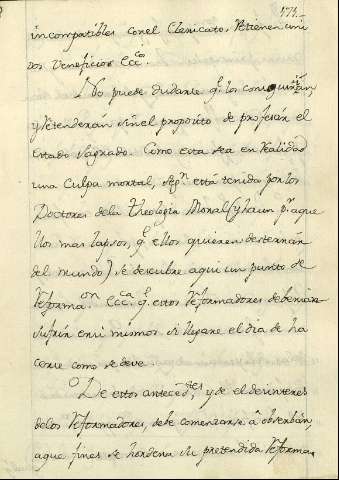 174.
incompatibles con el Clericato, Retienen uni
dos Veneficios Ecc.cos
No puede dudarse q.e los conseguirán
y Retenderán sin el proposito de profesar el
estado sagrado. Como esta sea en Realidad
una Culpa mortal, seg.n está tenida por los
Doctores de la Theologia Moral (y haun p.r aque
llos mas lapsos, q.e ellos quieren desterrar
del mundo) se descubre aqui un punto de
Reforma.on Ecc.ca q.e estos Reformadores deberian
sufrir en si mismos si llegare el dia de ha
cerse como se deve.
De estos anteced.tes, y de el desinteres
de los Reformadores, debe comenzarse â observar,
a que fines se hordena su pretendida Reforma